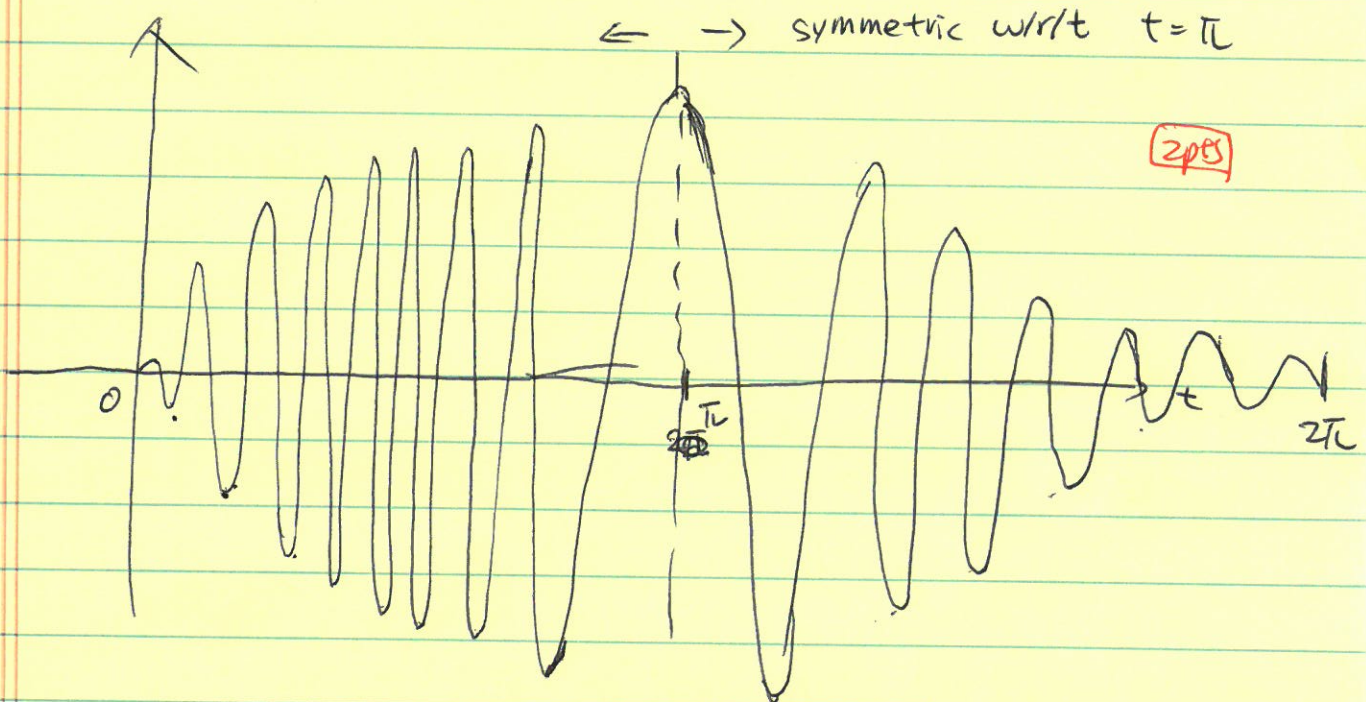 ← → symmetric w/r/t t = π
2pts
0
π
t
2π